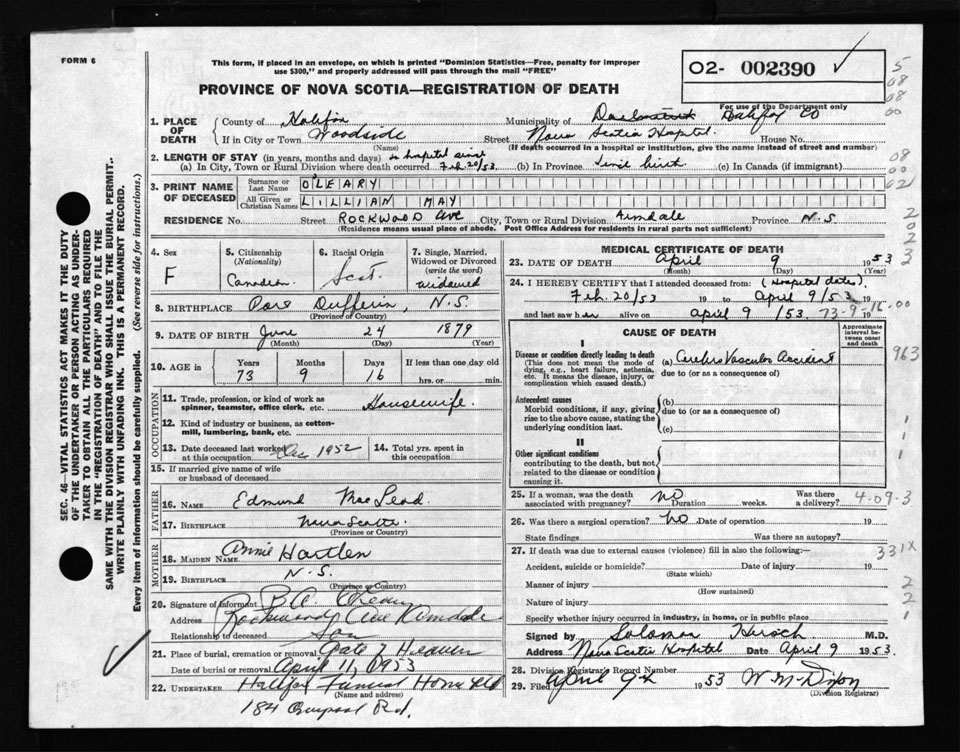 FORM 6
This form, if placed in an envelope, on which is printed "Dominion Statistics—Free, penalty for improper
use $300," and properly addressed will pass through the mail "FREE"
02- 002390 ✓
PROVINCE OF NOVA SCOTIA—REGISTRATION OF DEATH
For use of the Department only
1. PLACE OF DEATH
County of Halifax
Municipality of Halifax Co
If in City or Town Woodside
(Name)
Street Nova Scotia Hospital. House No.
(If death occurred in a hospital or institution, give the name instead of street and number)
2. LENGTH OF STAY (in years, months and days) in hospital since
(a) In City, Town or Rural Division where death occurred Feb 20/53. (b) In Province Since birth (c) In Canada (if immigrant)
3. PRINT NAME OF DECEASED
Surname or Last Name O'LEARY
All Given or Christian Names LILLIAN MAY
RESIDENCE No. Street ROCKWOOD Ave City, Town or Rural Division Armdale Province N.S.
(Residence means usual place of abode. Post Office Address for residents in rural parts not sufficient)
4. Sex
F
5. Citizenship
(Nationality)
Canadian.
6. Racial Origin
Scot.
7. Single, Married, Widowed or Divorced
(write the word)
widowed
8. BIRTHPLACE Port Dufferin, N.S.
(Province or Country)
9. DATE OF BIRTH June 24 1879
(Month) (Day) (Year)
10. AGE in
Years
73
Months
9
Days
16
If less than one day old
hrs. or min.
OCCUPATION
11. Trade, profession, or kind of work as
spinner, teamster, office clerk, etc. Housewife.
12. Kind of industry or business, as cotton-
mill, lumbering, bank, etc.
13. Date deceased last worked
at this occupation Dec 1952
14. Total yrs. spent in
this occupation
15. If married give name of wife
or husband of deceased
FATHER
16. NAME Edmund MacLead.
17. BIRTHPLACE Nova Scotia.
(Province or Country)
MOTHER
18. MAIDEN NAME Annie Hartlen
19. BIRTHPLACE N.S.
(Province or Country)
20. Signature of informant O'Leary
Address Rockwood Ave Armdale
Relationship to deceased Son
21. Place of burial, cremation or removal Gate of Heaven
Date of burial or removal April 11, 1953
22. UNDERTAKER Halifax Funeral Home Ltd
(Name and address)
184 Quinpool Rd.
MEDICAL CERTIFICATE OF DEATH
23. DATE OF DEATH April 9 1953
(Month) (Day) (Year)
24. I HEREBY CERTIFY that I attended deceased from: (Hospital dates).
Feb. 20/53 19 to April 9/53 19
and last saw her alive on April 9 /53. 19
73-9-16-00
CAUSE OF DEATH
Approximate interval between onset and death
I
Disease or condition directly leading to death
(This does not mean the mode of
dying, e.g., heart failure, asthenia,
etc. It means the disease, injury, or
complication which caused death.)
(a) Cerebro Vascular Accident
due to (or as a consequence of)
Antecedent causes
Morbid conditions, if any, giving
rise to the above cause, stating the
underlying condition last.
(b)
due to (or as a consequence of)
(c)
II
Other significant conditions
contributing to the death, but not
related to the disease or condition
causing it.
25. If a woman, was the death
associated with pregnancy? no Duration weeks. Was there
a delivery?
4-09-3
26. Was there a surgical operation? no Date of operation 19
State findings Was there an autopsy?
27. If death was due to external causes (violence) fill in also the following:—
331X
Accident, suicide or homicide? Date of injury 19
(State which)
Manner of injury
(How sustained)
Nature of injury
Specify whether injury occurred in industry, in home, or in public place
Signed by Solomon Hirsch M.D.
Address Nova Scotia Hospital Date April 9 1953.
28. Division Registrar's Record Number
29. Filed April 9th 1953 W M Dixon
(Division Registrar)
SEC. 46—VITAL STATISTICS ACT MAKES IT THE DUTY
OF THE UNDERTAKER OR PERSON ACTING AS UNDER-
TAKER TO OBTAIN ALL THE PARTICULARS REQUIRED
IN THE "REGISTRATION OF DEATH" AND TO FILE THE
SAME WITH THE DIVISION REGISTRAR WHO SHALL ISSUE THE BURIAL PERMIT.
WRITE PLAINLY WITH UNFADING INK. THIS IS A PERMANENT RECORD.
Every item of information should be carefully supplied. (See reverse side for instructions.)
5
08
08
00
08
00
02
2
02
2
3
963
1
1
1
2
2
1